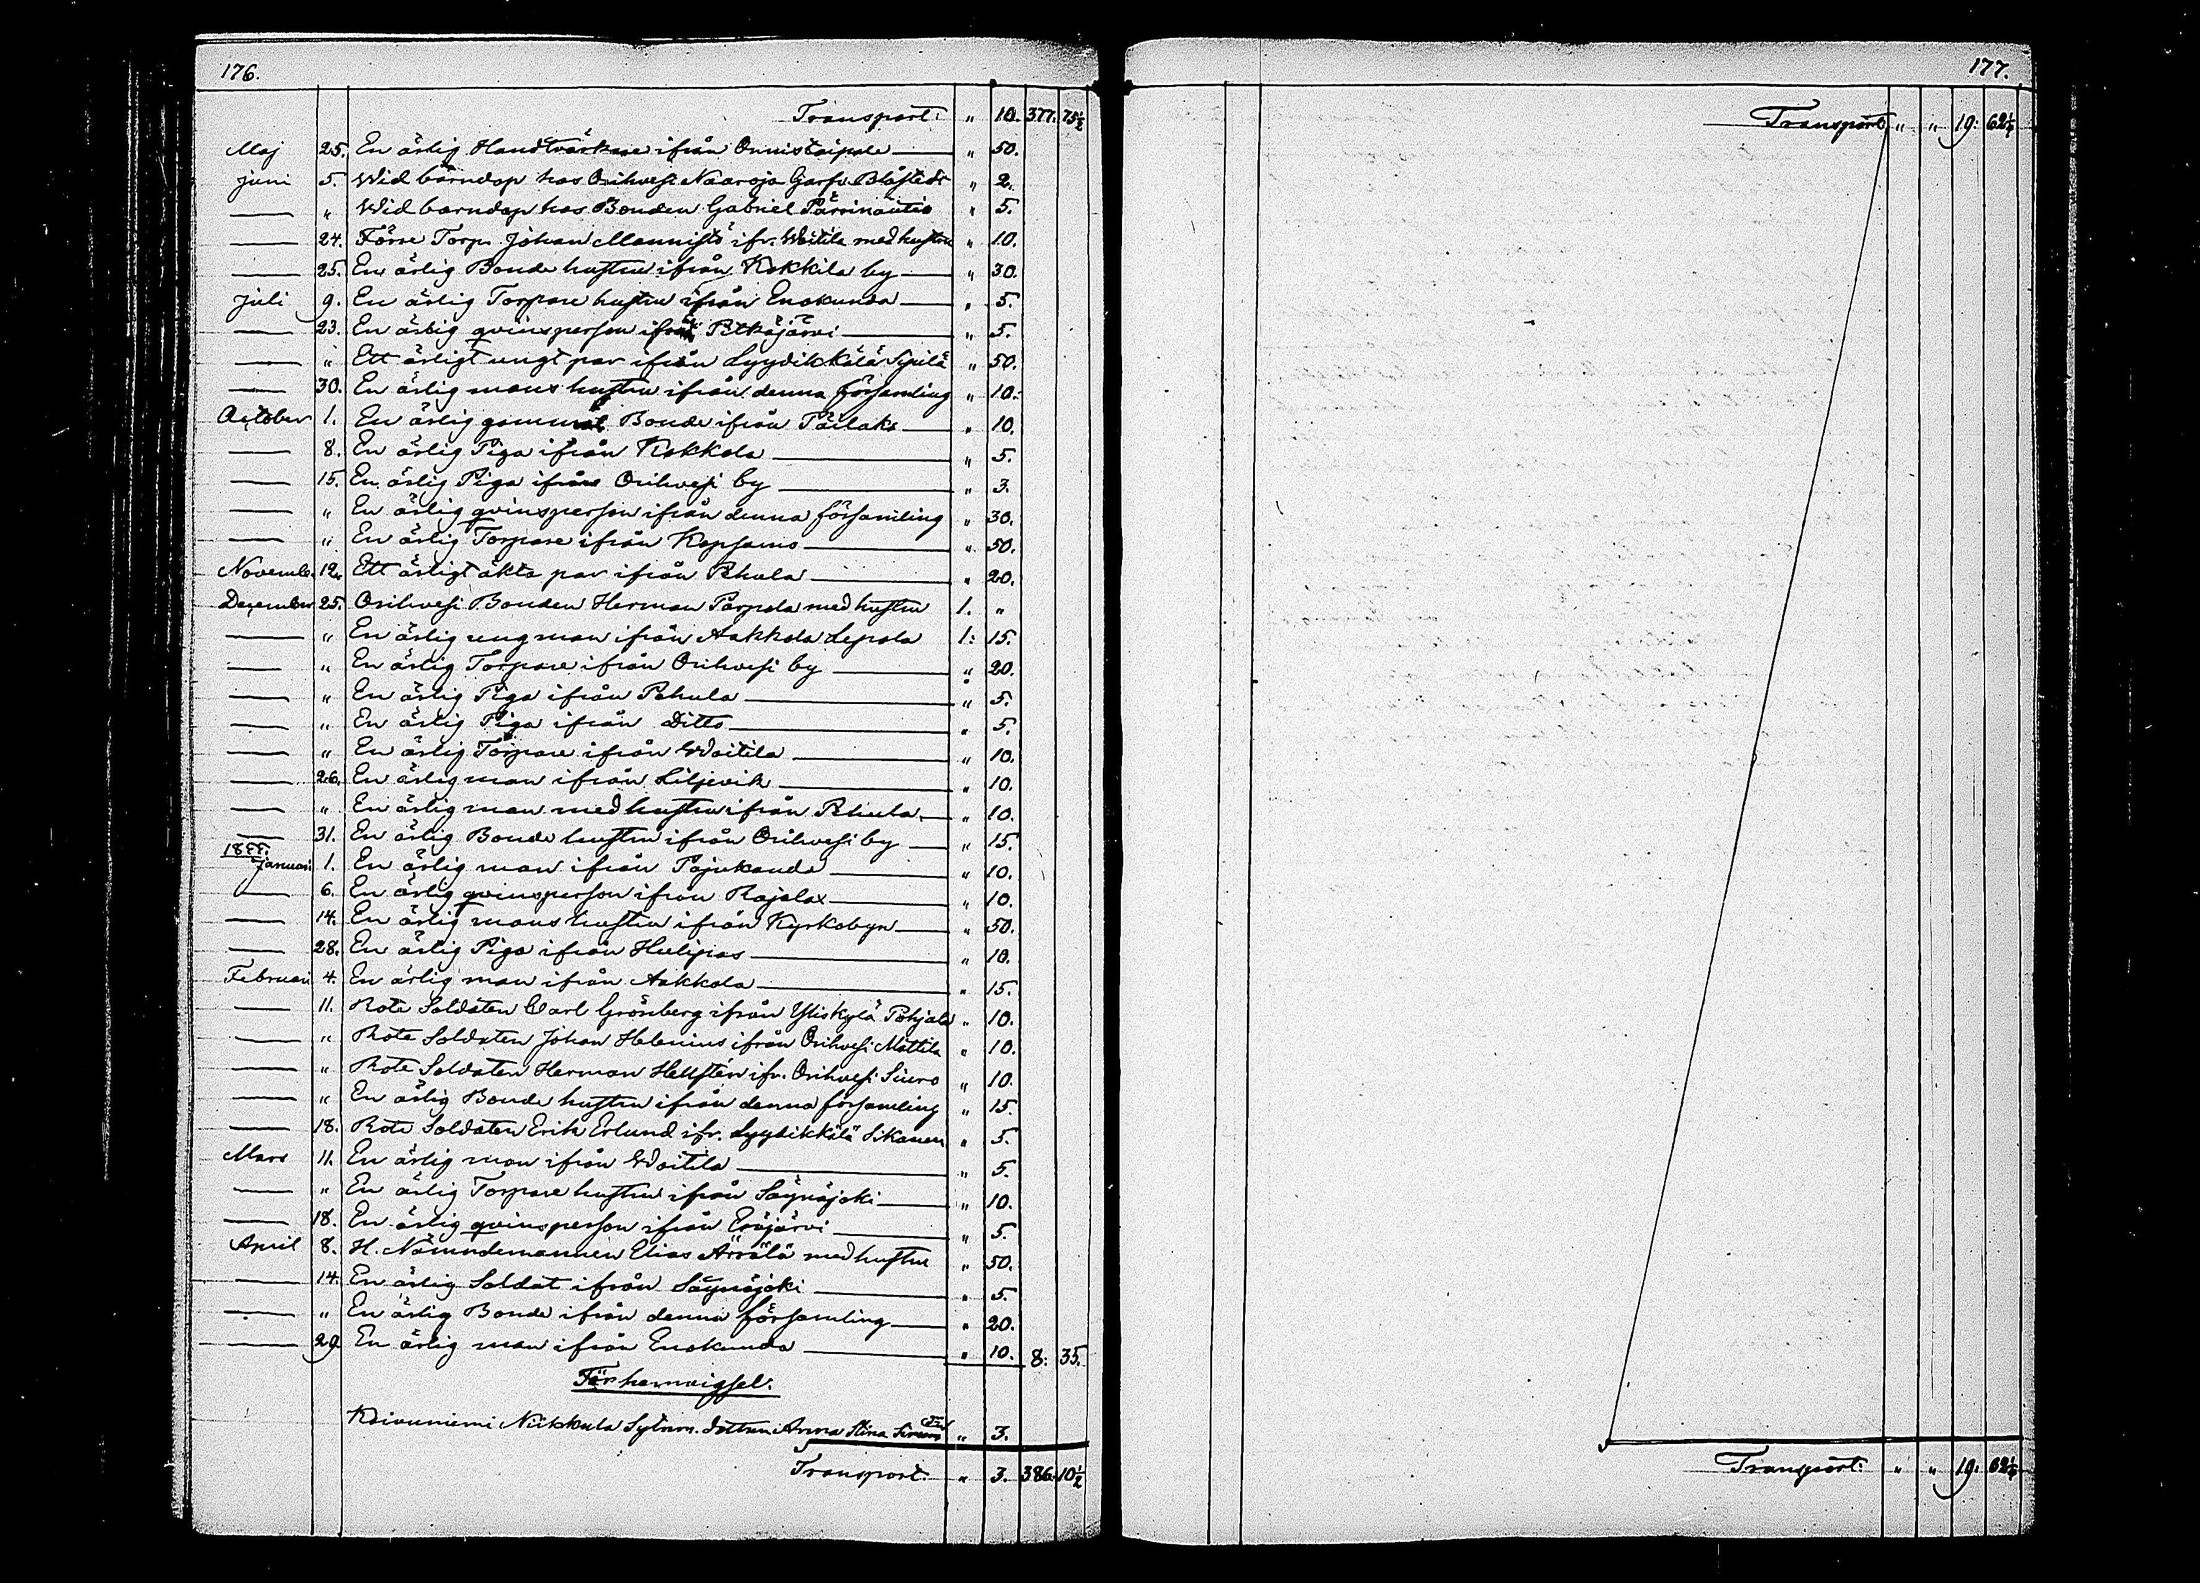 176.
Transport: " 10. 377. 75½
Maj 25. En ärlig Handtvärkare ifrån Onnistaipale " 50.
Juni 5. Wid barndop hos Orihvesi Naaraja Garfv. Blåstedt " 2.
" Wid barndop hos Bonden Gabriel Pärrinautio " 5.
24. Förre Torp. Johan Mannistö ifr. Woitila med hustru " 10.
25. En ärlig Bonde hustru ifrån Kokkila by " 30.
Juli 9. En ärlig Torpare hustru ifrån Enokunda " 5.
23. En ärlig qvinsperson ifrån Pitkäjärvi " 5.
" Ett ärligt ungt par ifrån Lyydikkälä Sipilä " 50.
30. En ärlig mans hustru ifrån denna församling " 10.
October 1. En ärlig gammal Bonde ifrån Päilaks " 10.
8. En ärlig Piga ifrån Kokkola " 5.
15. En ärlig Piga ifrån Orihvesi by " 3.
" En ärlig qvinsperson ifrån denna församling " 30.
" En ärlig Torpare ifrån Kopsamo " 50.
Novemb. 12. Ett ärligt äkta par ifrån Pehula " 20.
December 25. Orihvesi Bonden Herman Parpola med hustru 1. "
" En ärlig ung man ifrån Aakkola Lepola 1: 15.
" En ärlig Torpare ifrån Orihvesi by " 20.
" En ärlig Piga ifrån Pehula " 5.
" En ärlig Piga ifrån Ditto " 5.
" En ärlig Torpare ifrån Woitila " 10.
26. En ärlig man ifrån Liljevik " 10.
" En ärlig man med hustru ifrån Pehula " 10.
31. En ärlig Bonde hustru ifrån Orihvesi by " 15.
1877.
Januari 1. En ärlig man ifrån Pajukanda " 10.
6. En ärlig qvinsperson ifrån Rajalax " 10.
14. En ärlig mans hustru ifrån Kyrkobyn " 50.
28. En ärlig Piga ifrån Hulipas " 10.
Februari 4. En ärlig man ifrån Aakkola " 15.
11. Rote Soldaten Carl Grönberg ifrån Yliskylä Pohjala " 10.
" Rote Soldaten Johan Helenius ifrån Orihvesi Mattila " 10.
" Rote Soldaten Herman Hellstén ifr. Orihvesi Siuro " 10.
" En ärlig Bonde hustru ifrån denna församling " 15.
18. Rote Soldaten Erik Erlund ifr. Lyydikkälä Sikanen " 5.
Mars 11. En ärlig man ifrån Woitila " 5.
" En ärlig Torpare hustru ifrån Säynäjoki " 10.
18. En ärlig qvinsperson ifrån Eräjärvi " 5.
April 8. H. Nämndemannen Elias Ärrälä med hustru " 50.
14. En ärlig Soldat ifrån Säynäjoki " 5.
" En ärlig Bonde ifrån denna församling " 20.
29. En ärlig man ifrån Enokunda " 10. 8: 35.
För hemvigsel.
Koivuniemi Niikkula Sytnm. dottren Anna Stina " 3.
Transport: " 3. 386. 10½
177.
Transport: " " 19: 62½
Transport: " " 19: 62½